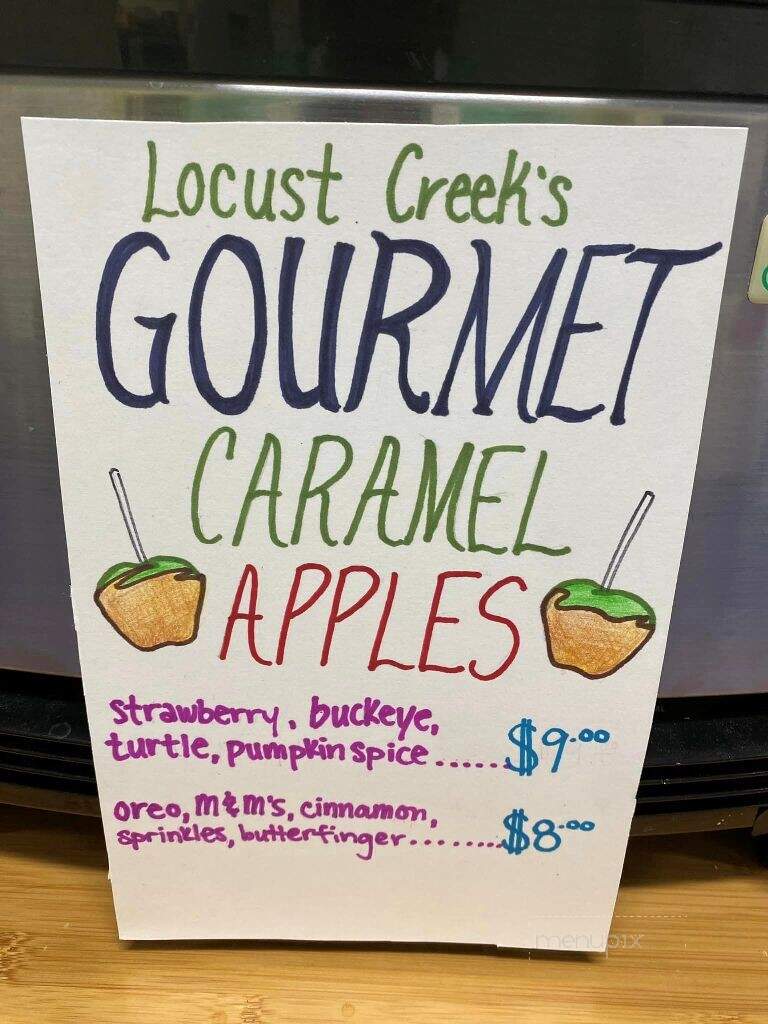 Locust Creek's
GOURMET
CARAMEL
APPLES
strawberry, buckeye,
turtle, pumpkin spice ...... $9.00
oreo, m&m's, cinnamon,
sprinkles, butterfinger......... $8.00
menupix